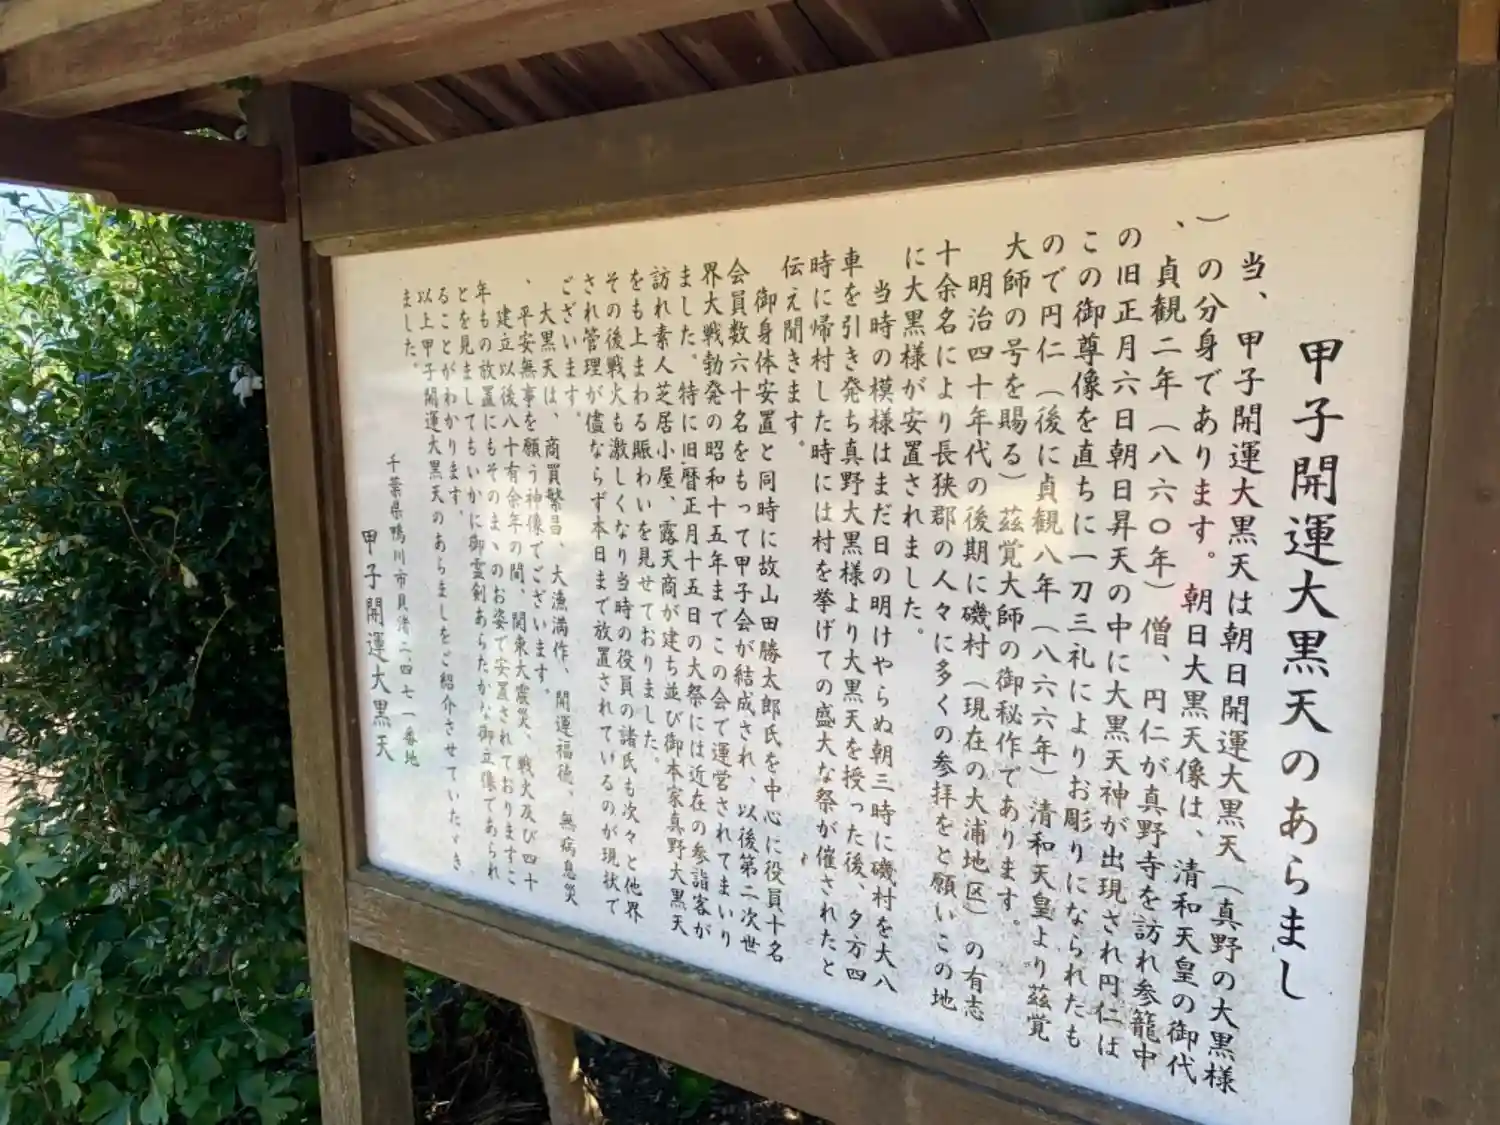 甲子開運大黒天のあらまし
当、甲子開運大黒天は朝日開運大黒天（真野の大黒様
）の分身であります。朝日大黒天像は、清和天皇の御代
、貞観二年（八六〇年）僧、円仁が真野寺を訪れ参籠中
の旧正月六日朝日昇天の中に大黒天神が出現され円仁は
この御尊像を直ちに一刀三礼によりお彫りになられたも
ので円仁（後に貞観八年（八六六年）清和天皇より慈覚
大師の号を賜る）慈覚大師の御秘作であります。
明治四十年代の後期に磯村（現在の大浦地区）の有志
十余名により長狭郡の人々に多くの参拝をと願いこの地
に大黒様が安置されました。
当時の模様はまだ日の明けやらぬ朝三時に磯村を大八
車を引き発ち真野大黒様より大黒天を授った後、夕方四
時に帰村した時には村を挙げての盛大な祭が催されたと
伝え聞きます。
御身体安置と同時に故山田勝太郎氏を中心に役員十名
会員数六十名をもって甲子会が結成され、以後第二次世
界大戦勃発の昭和十五年までこの会で運営されてまいり
ました。特に旧暦正月十五日の大祭には近在の参詣客が
訪れ素人芝居小屋、露天商が建ち並び御本家真野大黒天
をも上まわる賑わいを見せておりました。
その後戦火も激しくなり当時の役員の諸氏も次々と他界
され管理が儘ならず本日まで放置されているのが現状で
ございます。
大黒天は、商買繁昌、大漁満作、開運福徳、無病息災
、平安無事を願う神像でございます。
建立以後八十有余年の間、関東大震災、戦火及び四十
年もの放置にもそのまゝのお姿で安置されておりますこ
とを見ましてもいかに御霊剣あらたかな御立像であられ
ることがわかります。
以上甲子開運大黒天のあらましをご紹介させていたゞき
ました。
千葉県鴨川市貝渚二四七一番地
甲子開運大黒天